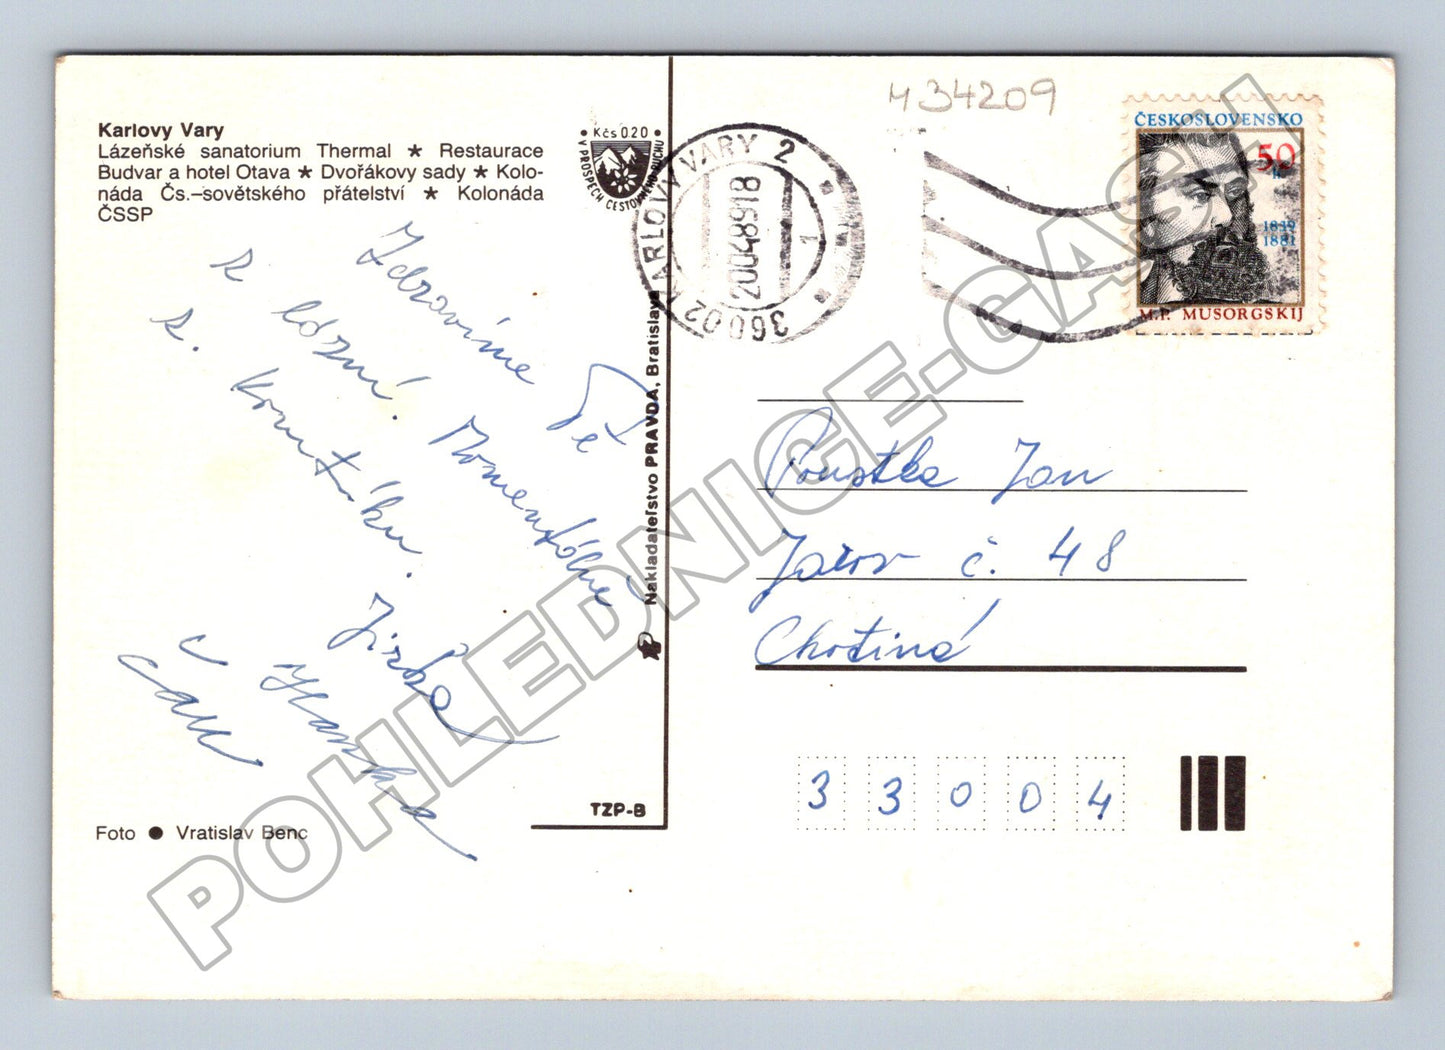 Karlovy Vary
Lázeňské sanatorium Thermal ★ Restaurace
Budvar a hotel Otava ★ Dvořákovy sady ★ Kolo-
náda Čs.–sovětského přátelství ★ Kolonáda
ČSSP
• Kčs 0.20 •
V PROSPĚCH CESTOVNÉHO RUCHU
36002 KARLOVY VARY 2
20.04.89.18
1
434209
ČESKOSLOVENSKO
50
1839
1881
M.P. MUSORGSKIJ
Zdravíme Tě
z lázní. Momentálně
z
Jirka
Hanka
Nakladateľstvo PRAVDA, Bratislava
Poustka Jan
Jarov č. 48
Chotiná
33004
TZP-B
Foto ● Vratislav Benc
POHLEDNICE-CASH